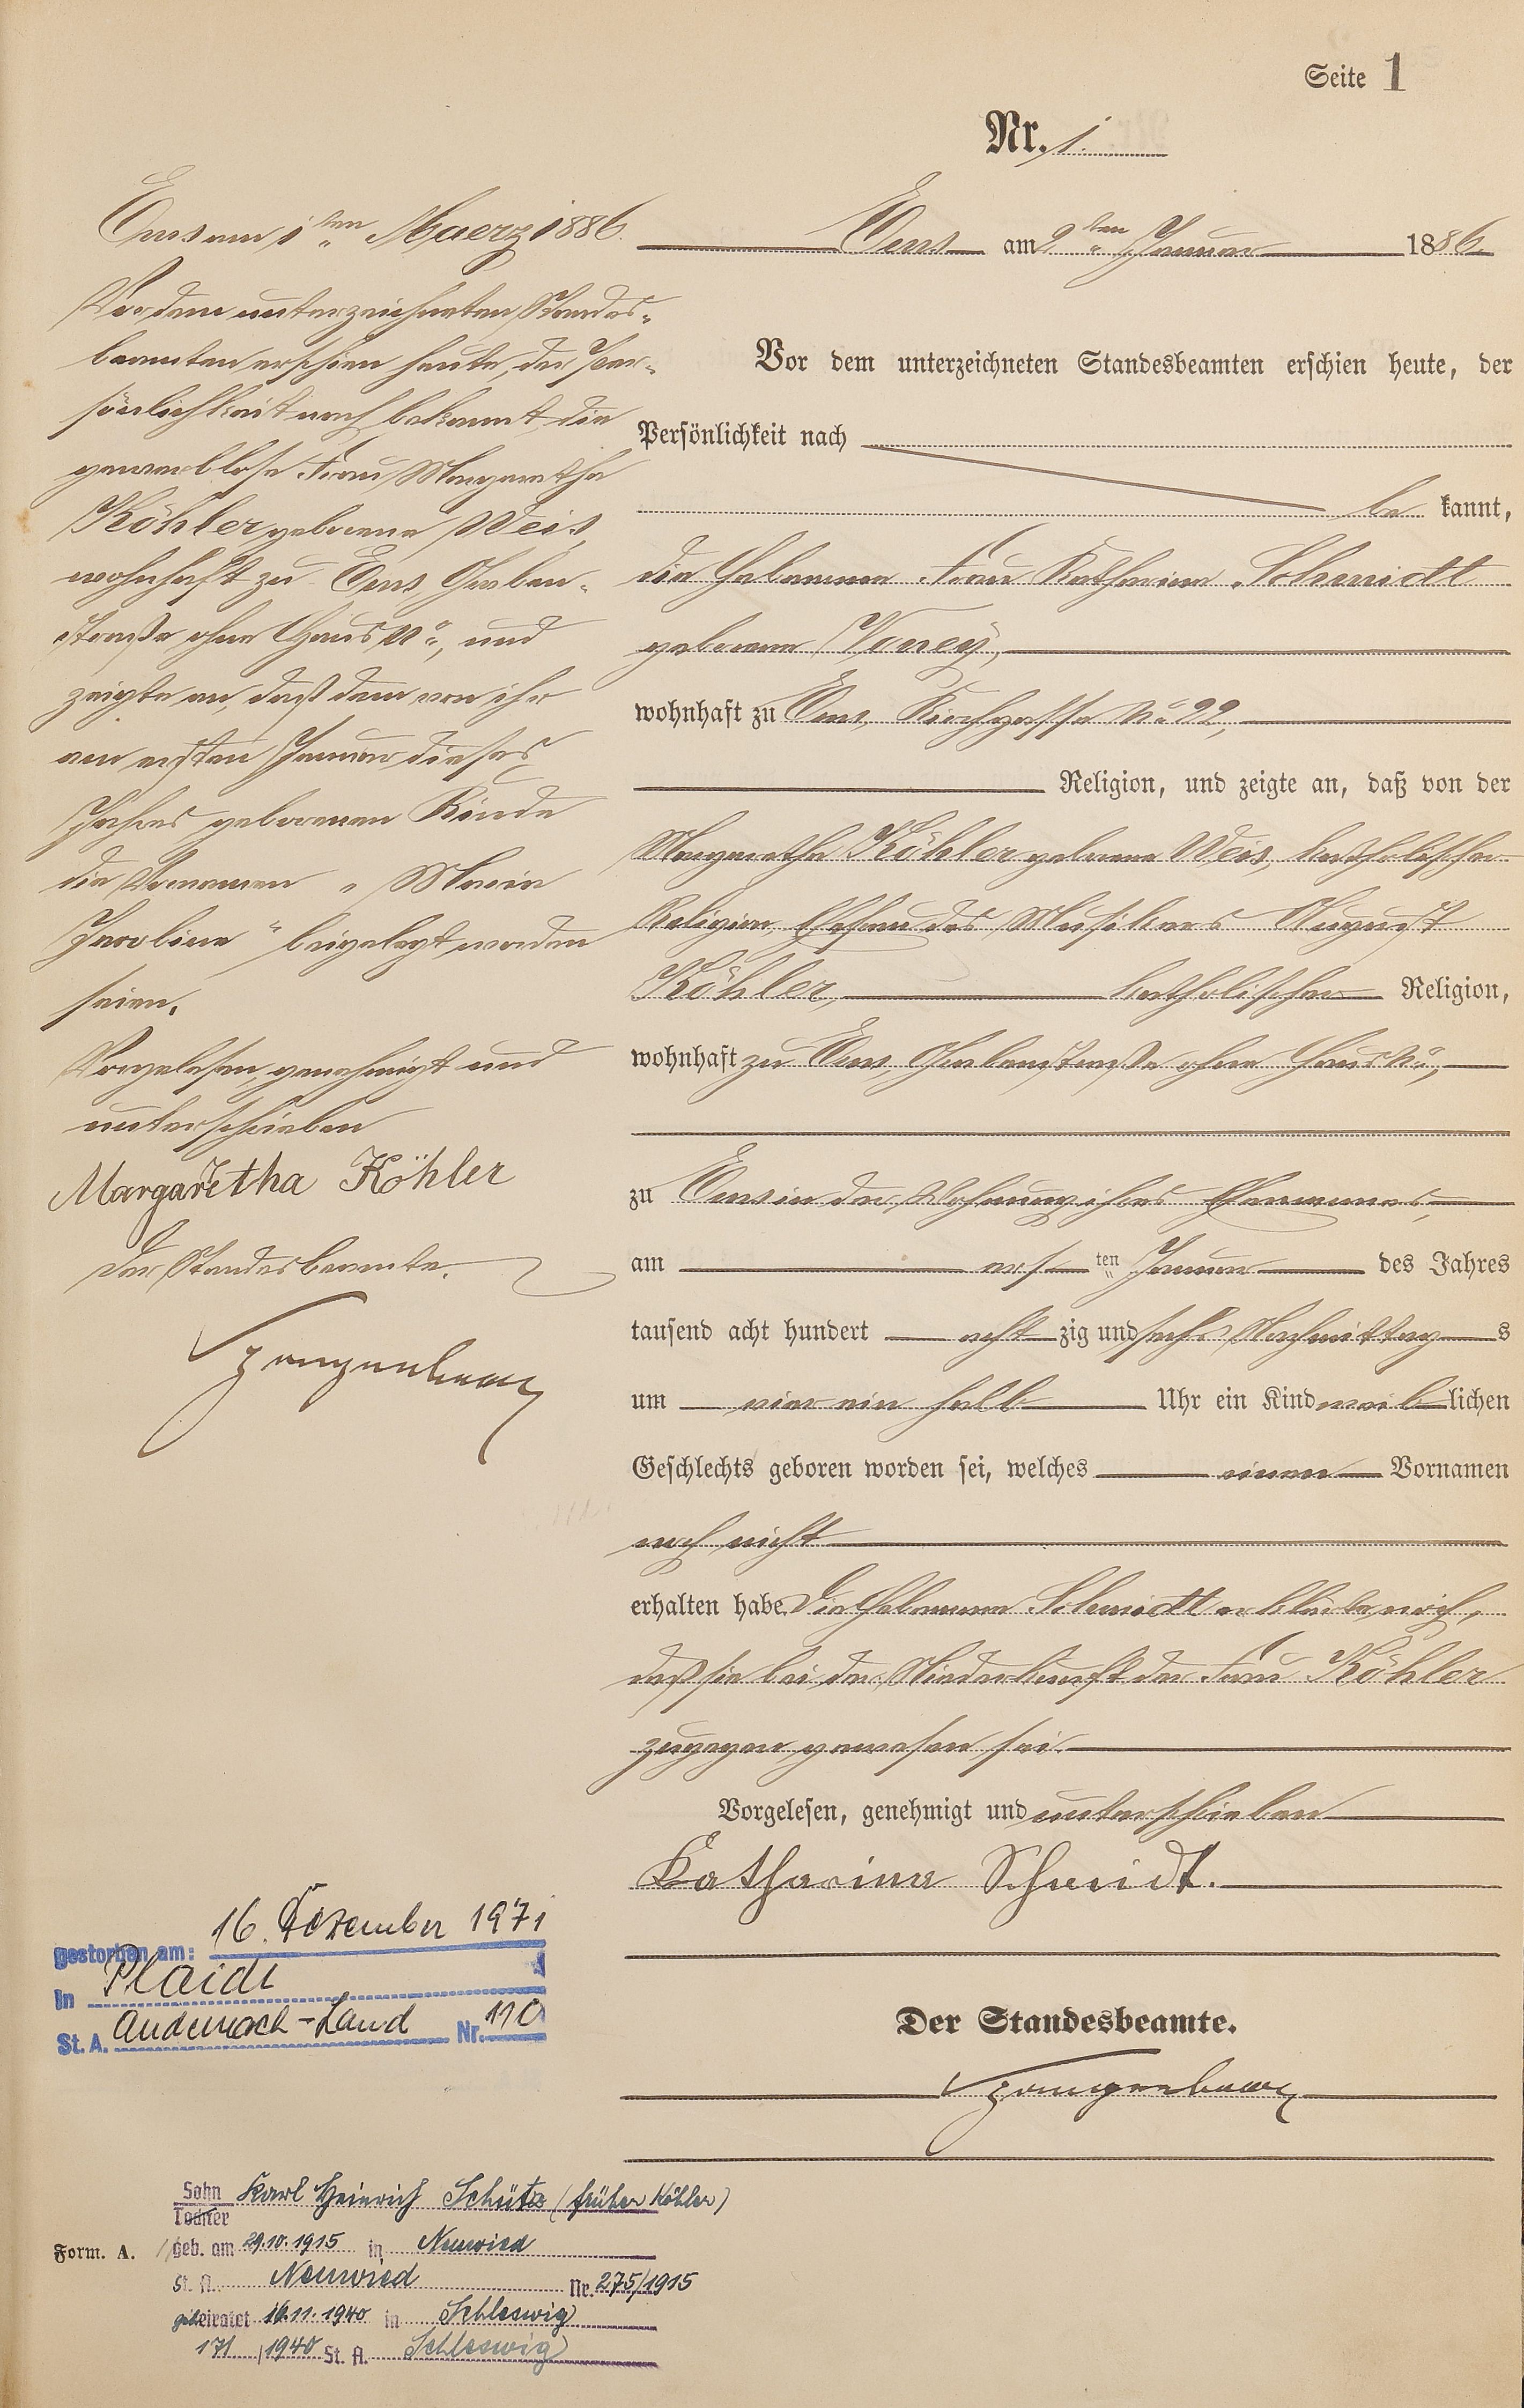 Seite 1
Nr. 1.
Ems am 2ten Januar 1886.
Vor dem unterzeichneten Standesbeamten erschien heute, der
Persönlichkeit nach
be kannt,
die Hebamme Frau Katharina Schmidt
geborene
wohnhaft zu Ems, Kirchgasse No 22,
Religion, und zeigte an, daß von der
Margaretha Köhler geborene Weis, katholischer
Religion, Ehefrau des Musikers August
Köhler, katholischer Religion,
wohnhaft zu Ems, Grabenstraße ohne Haus No,
zu Ems in der Wohnung ihres Ehemannes,
am ersten Januar des Jahres
tausend acht hundert acht zig und sechs Nachmittags
um vier ein halb Uhr ein Kind weiblichen
Geschlechts geboren worden sei, welches einen Vornamen
noch nicht
erhalten habe. Die Hebamme Schmidt erklärte, noch,
daß sie bei der Niederkunft der Frau Köhler
zugegen gewesen sei.
Vorgelesen, genehmigt und unterschrieben
Katharina Schmidt.
Der Standesbeamte.
Ems am 1ten Maerz 1886.
Vor dem unterzeichneten Standes-
beamten erschien heute, der Per-
sönlichkeit nach bekannt, die
gewerblose Frau Margaretha
Köhler geborene Weis,
wohnhaft zu Ems Graben-
straße ohne Haus No, und
zeigte an, daß dem von ihr
am ersten Januar dieses
Jahres geborenen Kinde
die Vornamen „Maria
Jacobine“ beigelegt worden
seien.
Vorgelesen, genehmigt und
unterschrieben
Margaretha Köhler
Der Standesbeamte.
gestorben am: 16. Dezember 1971
in Plaidt
St. A. Andernach-Land Nr. 110
Sohn Karl Heinrich Schütz (früher Köhler)
Tochter
Form. A.
geb. am 29.10.1915 in Neuwied
St. A. Neuwied Nr. 275/1915
geheiratet 16.11.1940 in Schleswig
171/1940 St. A. Schleswig